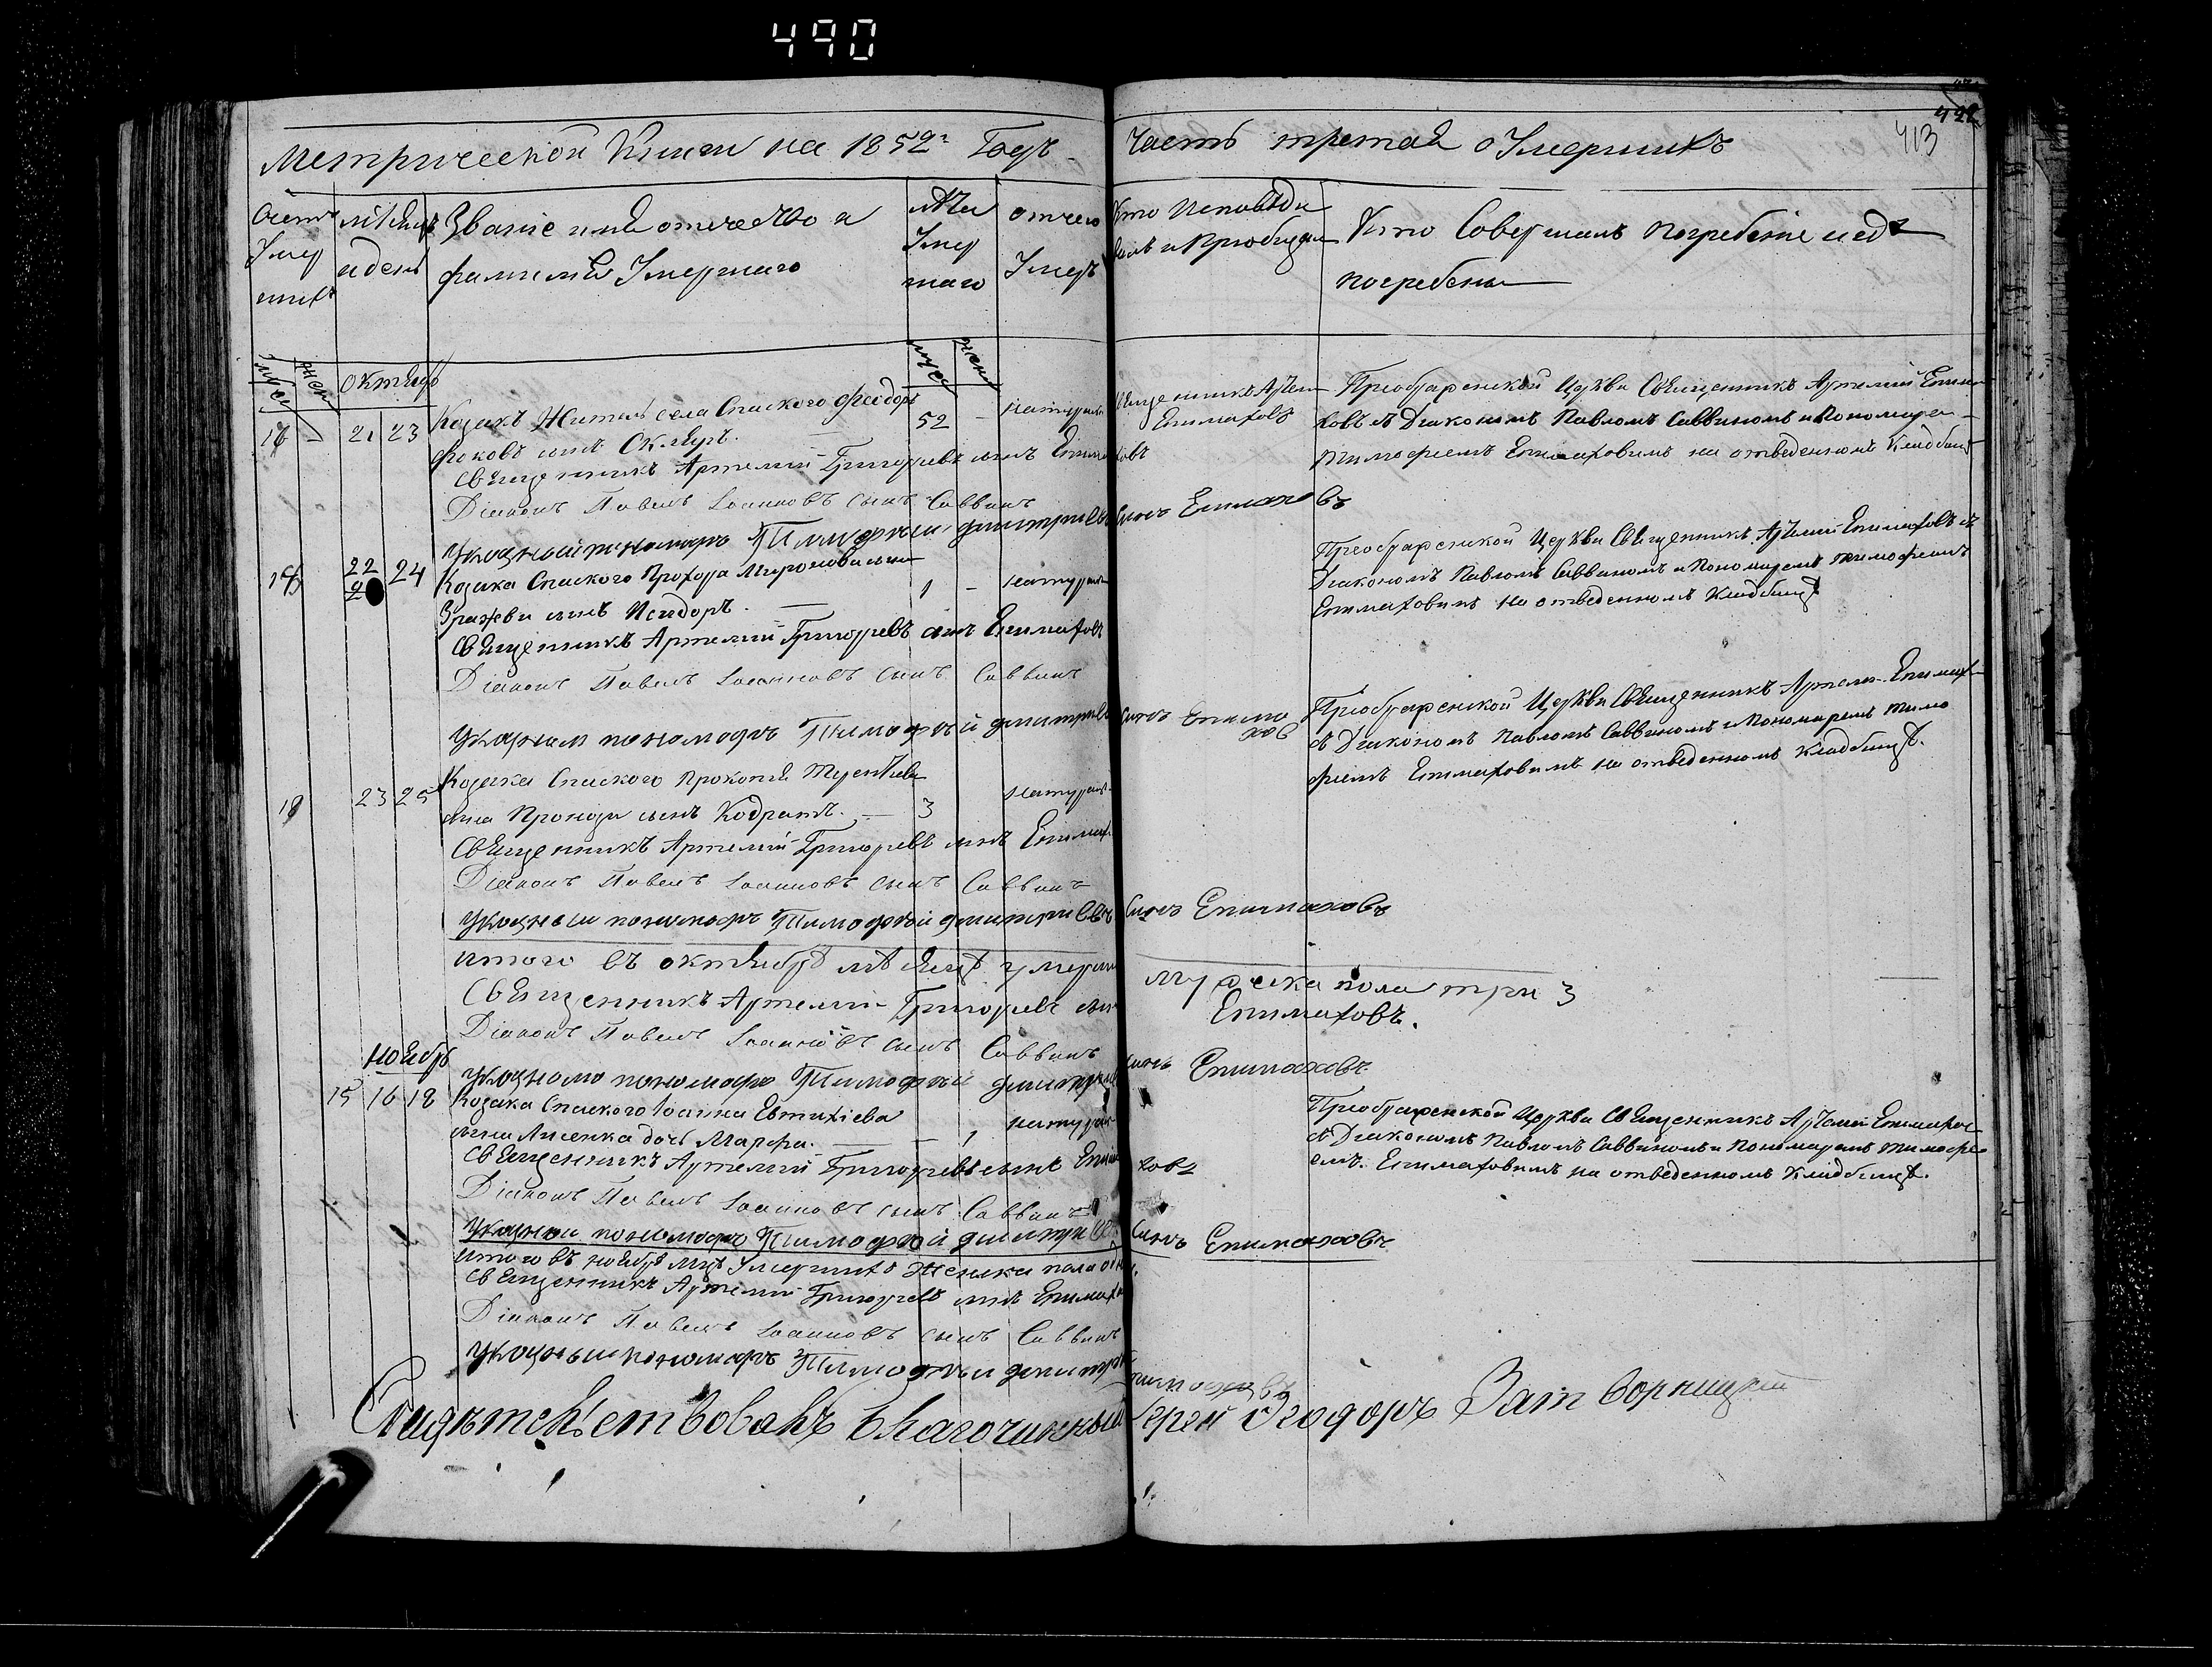 490
Метрической Книги на 1852 Годъ
Часть третая о Умершихъ
413
Счетъ Умер шихъ
мѣсяцъ и день
Званіе имя отечество и
фамилія Умершаго
лѣта Умер шаго
отчего Умеръ
Кто Исповѣды валъ и Приобщалъ
Кто Совершалъ погребеніе и гдѣ
погребены
муж жен
октябрь
муж жен
16 — 21 23
Козакъ Житель села Спаского Феодоръ
52 — натурал
Фоковъ сынъ Скляръ.
Священникъ Артемій Епимаховъ
Преображенской Церкви Священникъ Артемій Епима
ховъ съ Диакономъ Павломъ Саввиномъ и Пономаре
Тимофеемъ Епимаховимъ на отведенномъ Кладбищѣ
Священникъ Артемій Григорьевъ сынъ Епимаховъ
Діаконъ Павелъ Іоанновъ сынъ Саввинъ
Указный пономаръ Тимофей Дмитриевъ Сынъ Епимаховъ
22 24
Козака Спаского Прохора Миронова сына
1 — натурал
Зражевы сынъ Исидоръ.
Преображенской Церкви Священникъ Артемій Епимаховъ съ
Диакономъ Павломъ Саввиномъ и Пономаремъ Тимофеемъ
Епимаховимъ на отведенномъ Кладбищѣ
Священникъ Артемій Григорьевъ сынъ Епимаховъ
Діаконъ Павелъ Іоанновъ сынъ Саввинъ
Указный пономаръ Тимофей Дмитриевъ Сынъ Епимаховъ
18 23 25
Козака Спаского Прокопія Терентіева
сына Пронози сынъ Кодратъ. — 3 натурал
Преображенской Церкви Священникъ Артемій Епимах
съ Диакономъ Павломъ Саввиномъ и Пономаремъ Тимо
фиемъ Епимаховимъ на отведенномъ Кладбищѣ.
Священникъ Артемій Григорьевъ сынъ Епимах
Діаконъ Павелъ Іоанновъ сынъ Саввинъ
Указный пономаръ Тимофей Дмитриевъ Сынъ Епимаховъ
Итого въ октябрѣ мѣсяцѣ умерши мужеска пола три 3
Священникъ Артемій Григорьевъ сын Епимаховъ.
Діаконъ Павелъ Іоанновъ сынъ Саввинъ
Указный пономаръ Тимофей Дмитриев Сынъ Епимаховъ
Ноябрь
15 16 18
Козака Спаского Іоанна Евтихіева
сына Лисенка дочь Марфа. — 1 натурал
Преображенской Церкви Священникъ Артемій Епимахов
съ Диакономъ Павломъ Саввиномъ и Пономаремъ Тимофе
емъ Епимаховимъ на отведенномъ Кладбищѣ.
Священникъ Артемій Григорьевъ сынъ Епимаховъ
Діаконъ Павелъ Іоанновъ сынъ Саввинъ
Указный пономаръ Тимофей Дмитриев Сынъ Епимаховъ
Итого въ ноябрѣ мцѣ Умершихъ Женска пола одна.
Священникъ Артемій Григорьевъ сынъ Епимахов
Діаконъ Павелъ Іоанновъ сынъ Саввинъ
Указный пономаръ Тимофей Дмитр
Свидѣтельствовалъ Благочинный Іерей Феодоръ Затворницкій